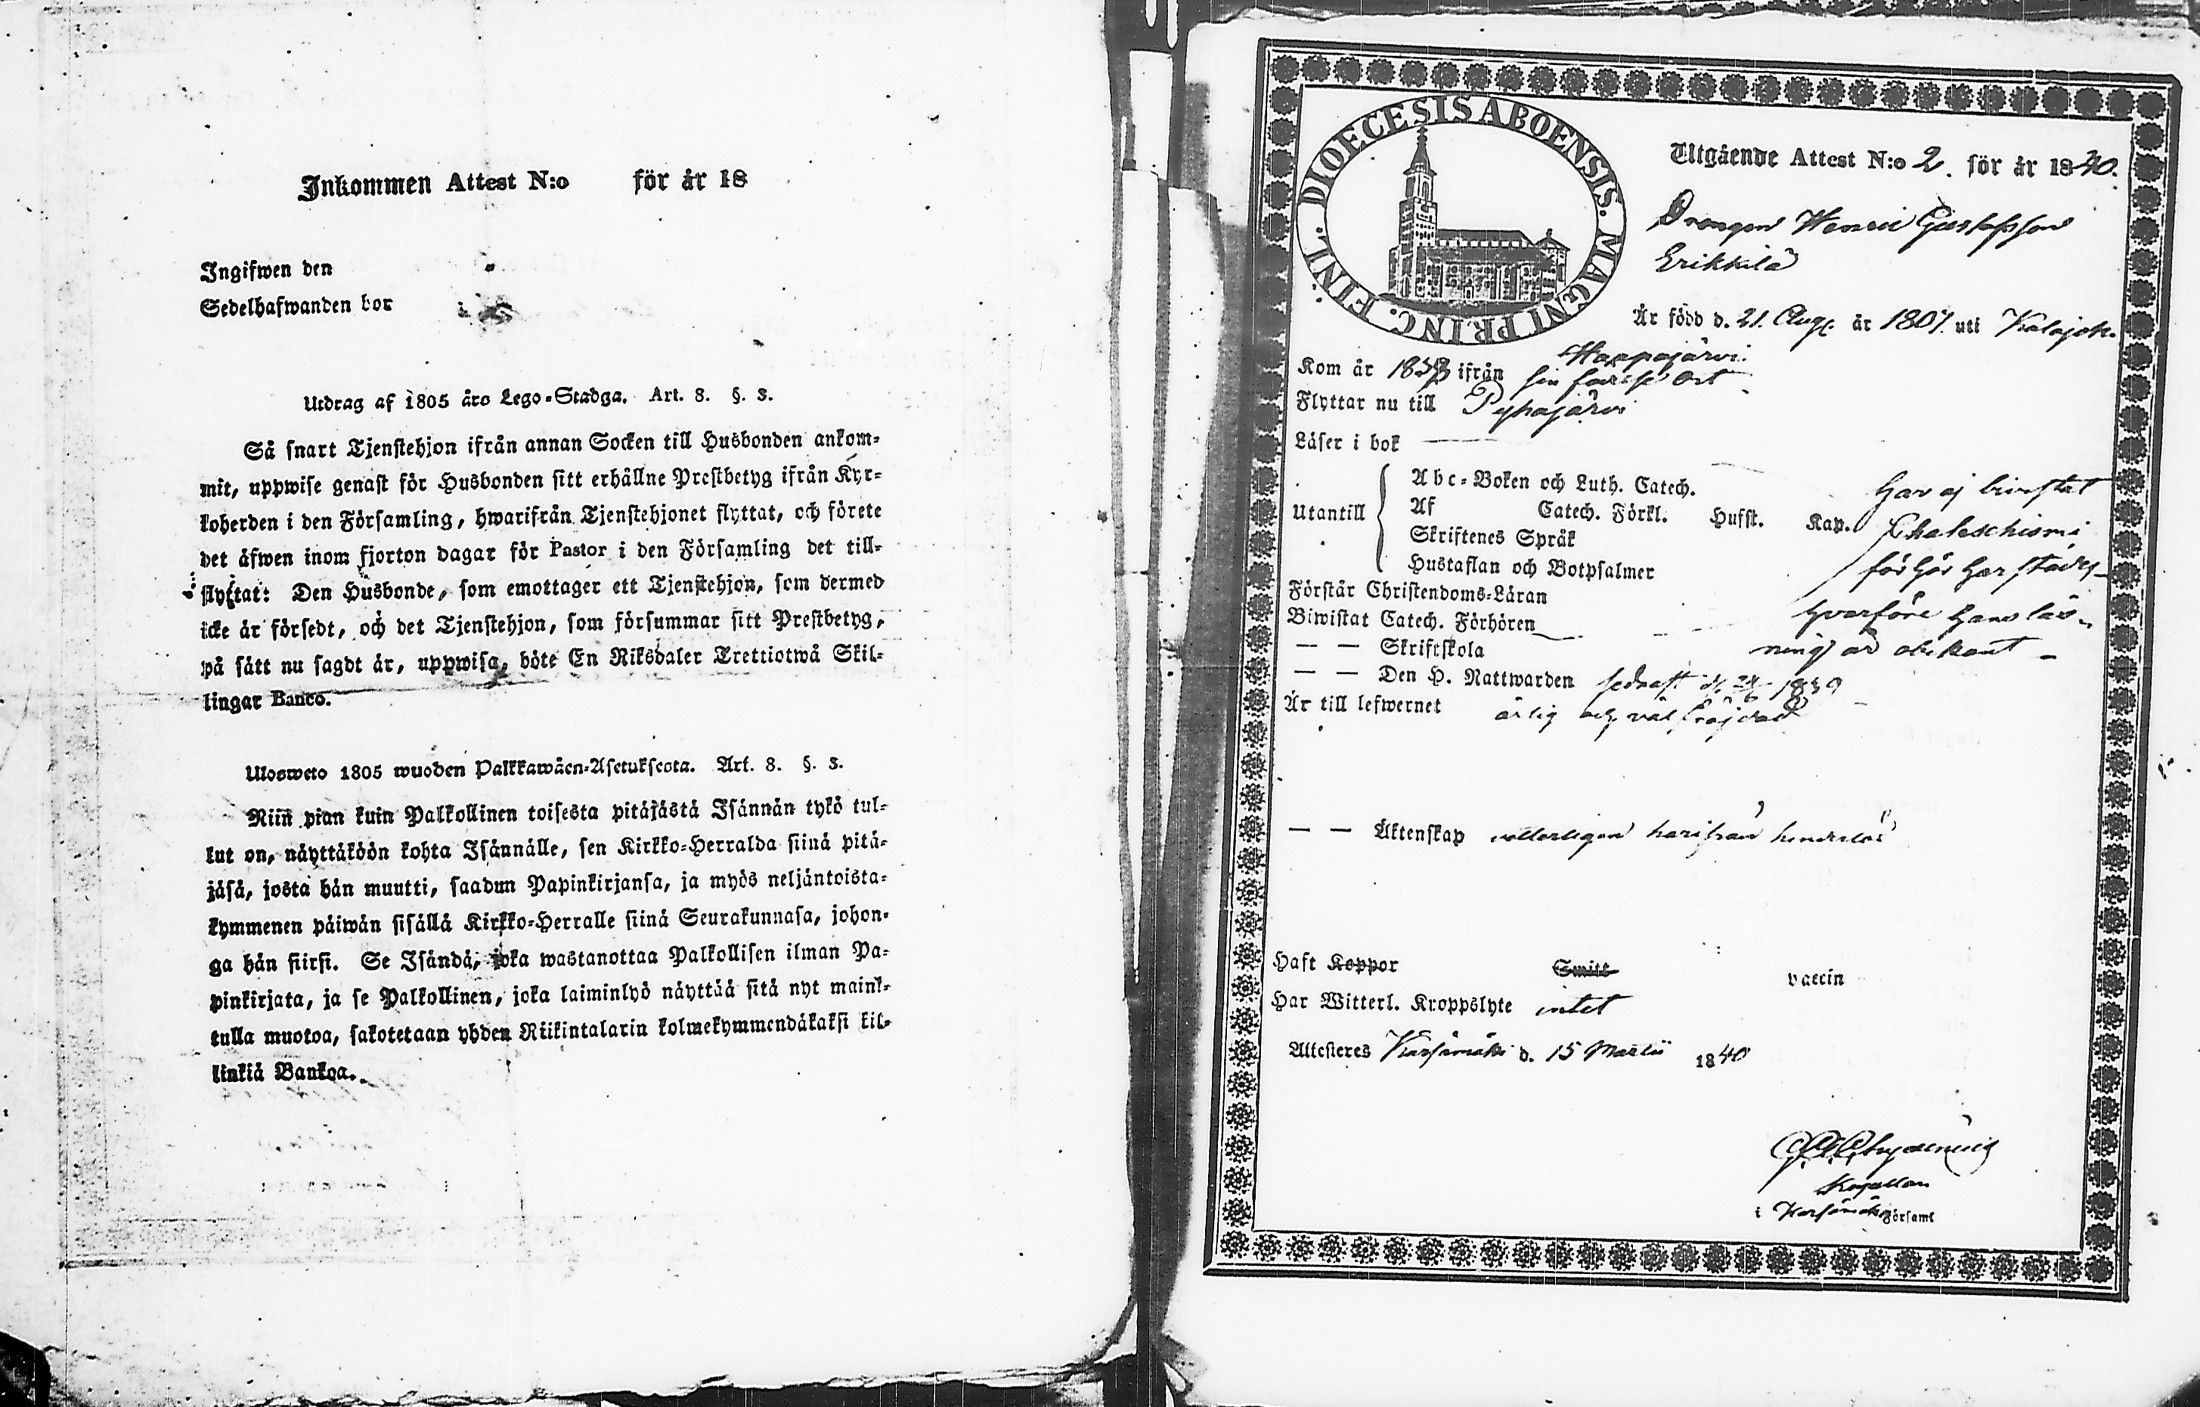 Inkommen Attest N:o för år 18
Ingifwen den
Sedelhafwanden bor
Utdrag af 1805 års Lego-Stadga. Art. 8. §. 3.
Så snart Tjenstehjon ifrån annan Socken till Husbonden ankom-
mit, uppwise genast för Husbonden sitt erhållne Prestbetyg ifrån Kyr-
koherden i den Församling, hwarifrån Tjenstehjonet flyttat, och förete
det äfwen inom fjorton dagar för Pastor i den Församling det till-
flyttat: Den Husbonde, som emottager ett Tjenstehjon, som dermed
icke är försedt, och det Tjenstehjon, som försummar sitt Prestbetyg,
på sätt nu sagdt är, uppwisa, böte En Riksdaler Trettiotwå Skil-
lingar Banco.
Ulosweto 1805 wuoden Palkkawäen-Asetuksesta. Art. 8. §. 3.
Niin pian kuin Palkollinen toisesta pitäjästä Isännän tykö tul-
kut on, näyttäköön kohta Isännälle, sen Kirkko-Herralda siinä pitä-
jäsä, josta hän muutti, saadun Papinkirjansa, ja myös neljäntoista-
kymmenen päiwän sisällä Kirkko-Herralle siinä Seurakunnasa, johon-
ga hän siirsi. Se Isändä, joka wastanottaa Palkollisen ilman Pa-
pinkirjata, ja se Palkollinen, joka laiminlyö näyttää sitä nyt maink-
tulla muotoa, sakotetaan yhden Riikintalarin kolmekymmendäkaksi kil-
linkiä Bankoa.
DIOECESIS ABOENSIS. MAGNI PRINC. FINL.
Utgående Attest N:o 2. för år 1840.
Drängen Henric Gustafsson
Erikkilä
Är född d. 21. Aug. år 1807. uti Kalajok.
Haapajärvi
Kom år 1838 ifrån sin födelse ort
Flyttar nu till Pyhäjärvi
Läser i bok
Utantill
Abc-Boken och Luth. Catech.
Af Catech. Förkl. Husst. Kap.
Skriftenes Språk
Hustaflan och Botpsalmer
har ej bivistat
Chateschismi
förhör härstädes
hvarföre hans läs-
ning är obekant
Förstår Christendoms-Läran
Biwistat Catech. Förhören
— — Skriftskola
— — Den H. Nattwarden sednast d. 24/6 1839
Är till lefwernet ärlig och väl fräjdad
— — Äktenskap vetterligen härifrån hinderlös
Haft Koppor Smitt vaccin
Har Witterl. Kroppslyte intet
Attesteres Kärsämäki d. 15 Martii 1840
Kapellan
i Kärsämäki Församl